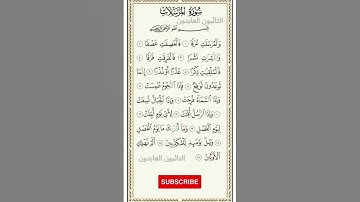 سُورَةُ المُرْسَلَاتِ
التائبون العابدون
بِسْمِ اللَّهِ الرَّحْمَٰنِ الرَّحِيمِ
وَالْمُرْسَلَاتِ عُرْفًا ١ فَالْعَاصِفَاتِ عَصْفًا ٢
وَالنَّاشِرَاتِ نَشْرًا ٣ فَالْفَارِقَاتِ فَرْقًا ٤
فَالْمُلْقِيَاتِ ذِكْرًا ٥ عُذْرًا أَوْ نُذْرًا ٦ إِنَّمَا
تُوعَدُونَ لَوَاقِعٌ ٧ فَإِذَا النُّجُومُ طُمِسَتْ ٨
وَإِذَا السَّمَاءُ فُرِجَتْ ٩ وَإِذَا الْجِبَالُ نُسِفَتْ
١٠ وَإِذَا الرُّسُلُ أُقِّتَتْ ١١ لِأَيِّ يَوْمٍ أُجِّلَتْ ١٢
لِيَوْمِ الْفَصْلِ ١٣ وَمَا أَدْرَاكَ مَا يَوْمُ الْفَصْلِ
١٤ وَيْلٌ يَوْمَئِذٍ لِلْمُكَذِّبِينَ ١٥ أَلَمْ نُهْلِكِ
الْأَوَّلِينَ ١٦
التائبون العابدون
SUBSCRIBE